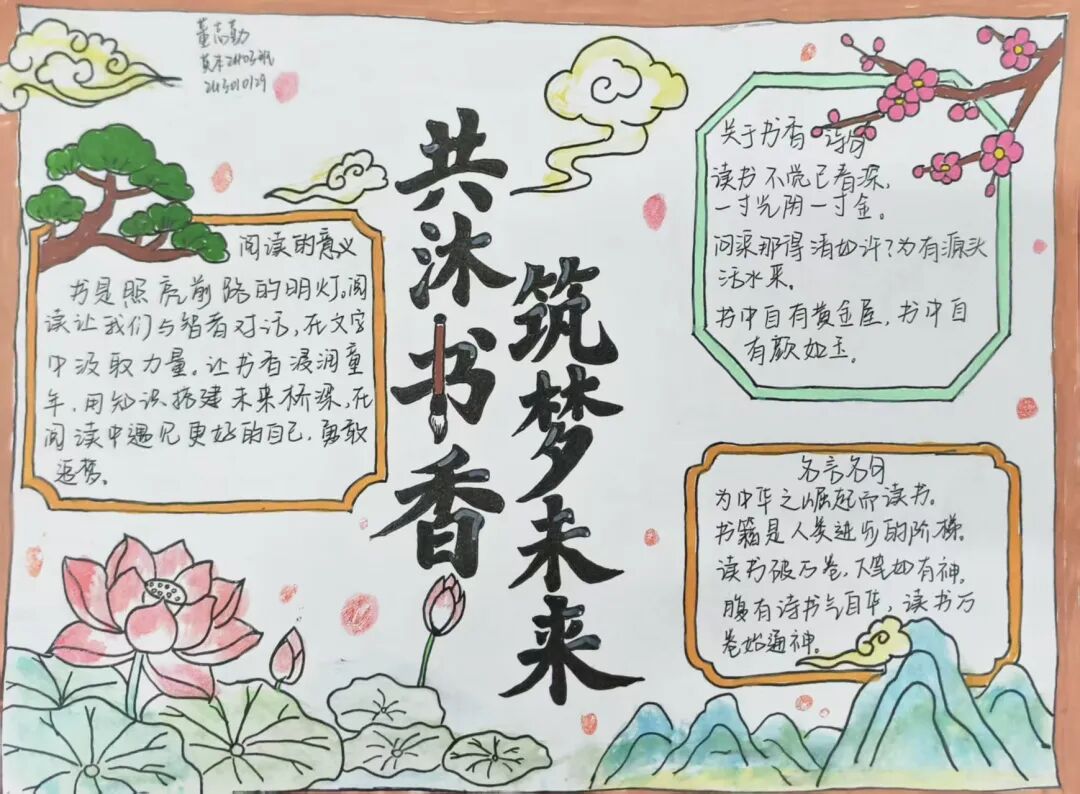 董高勤
2413010129
共沐书香
筑梦未来
阅读的意义
书是照亮前路的明灯。阅
读让我们与智者对话，在文字
中汲取力量。让书香浸润童
年，用知识搭建未来桥梁，在
阅读中遇见更好的自己，勇敢
追梦。
关于书香 诗句
读书不觉已春深，
一寸光阴一寸金。
问渠那得清如许？为有源头
活水来。
书中自有黄金屋，书中自
有颜如玉。
名言名句
为中华之崛起而读书。
书籍是人类进步的阶梯。
读书破万卷，下笔如有神。
腹有诗书气自华，读书万
卷始通神。